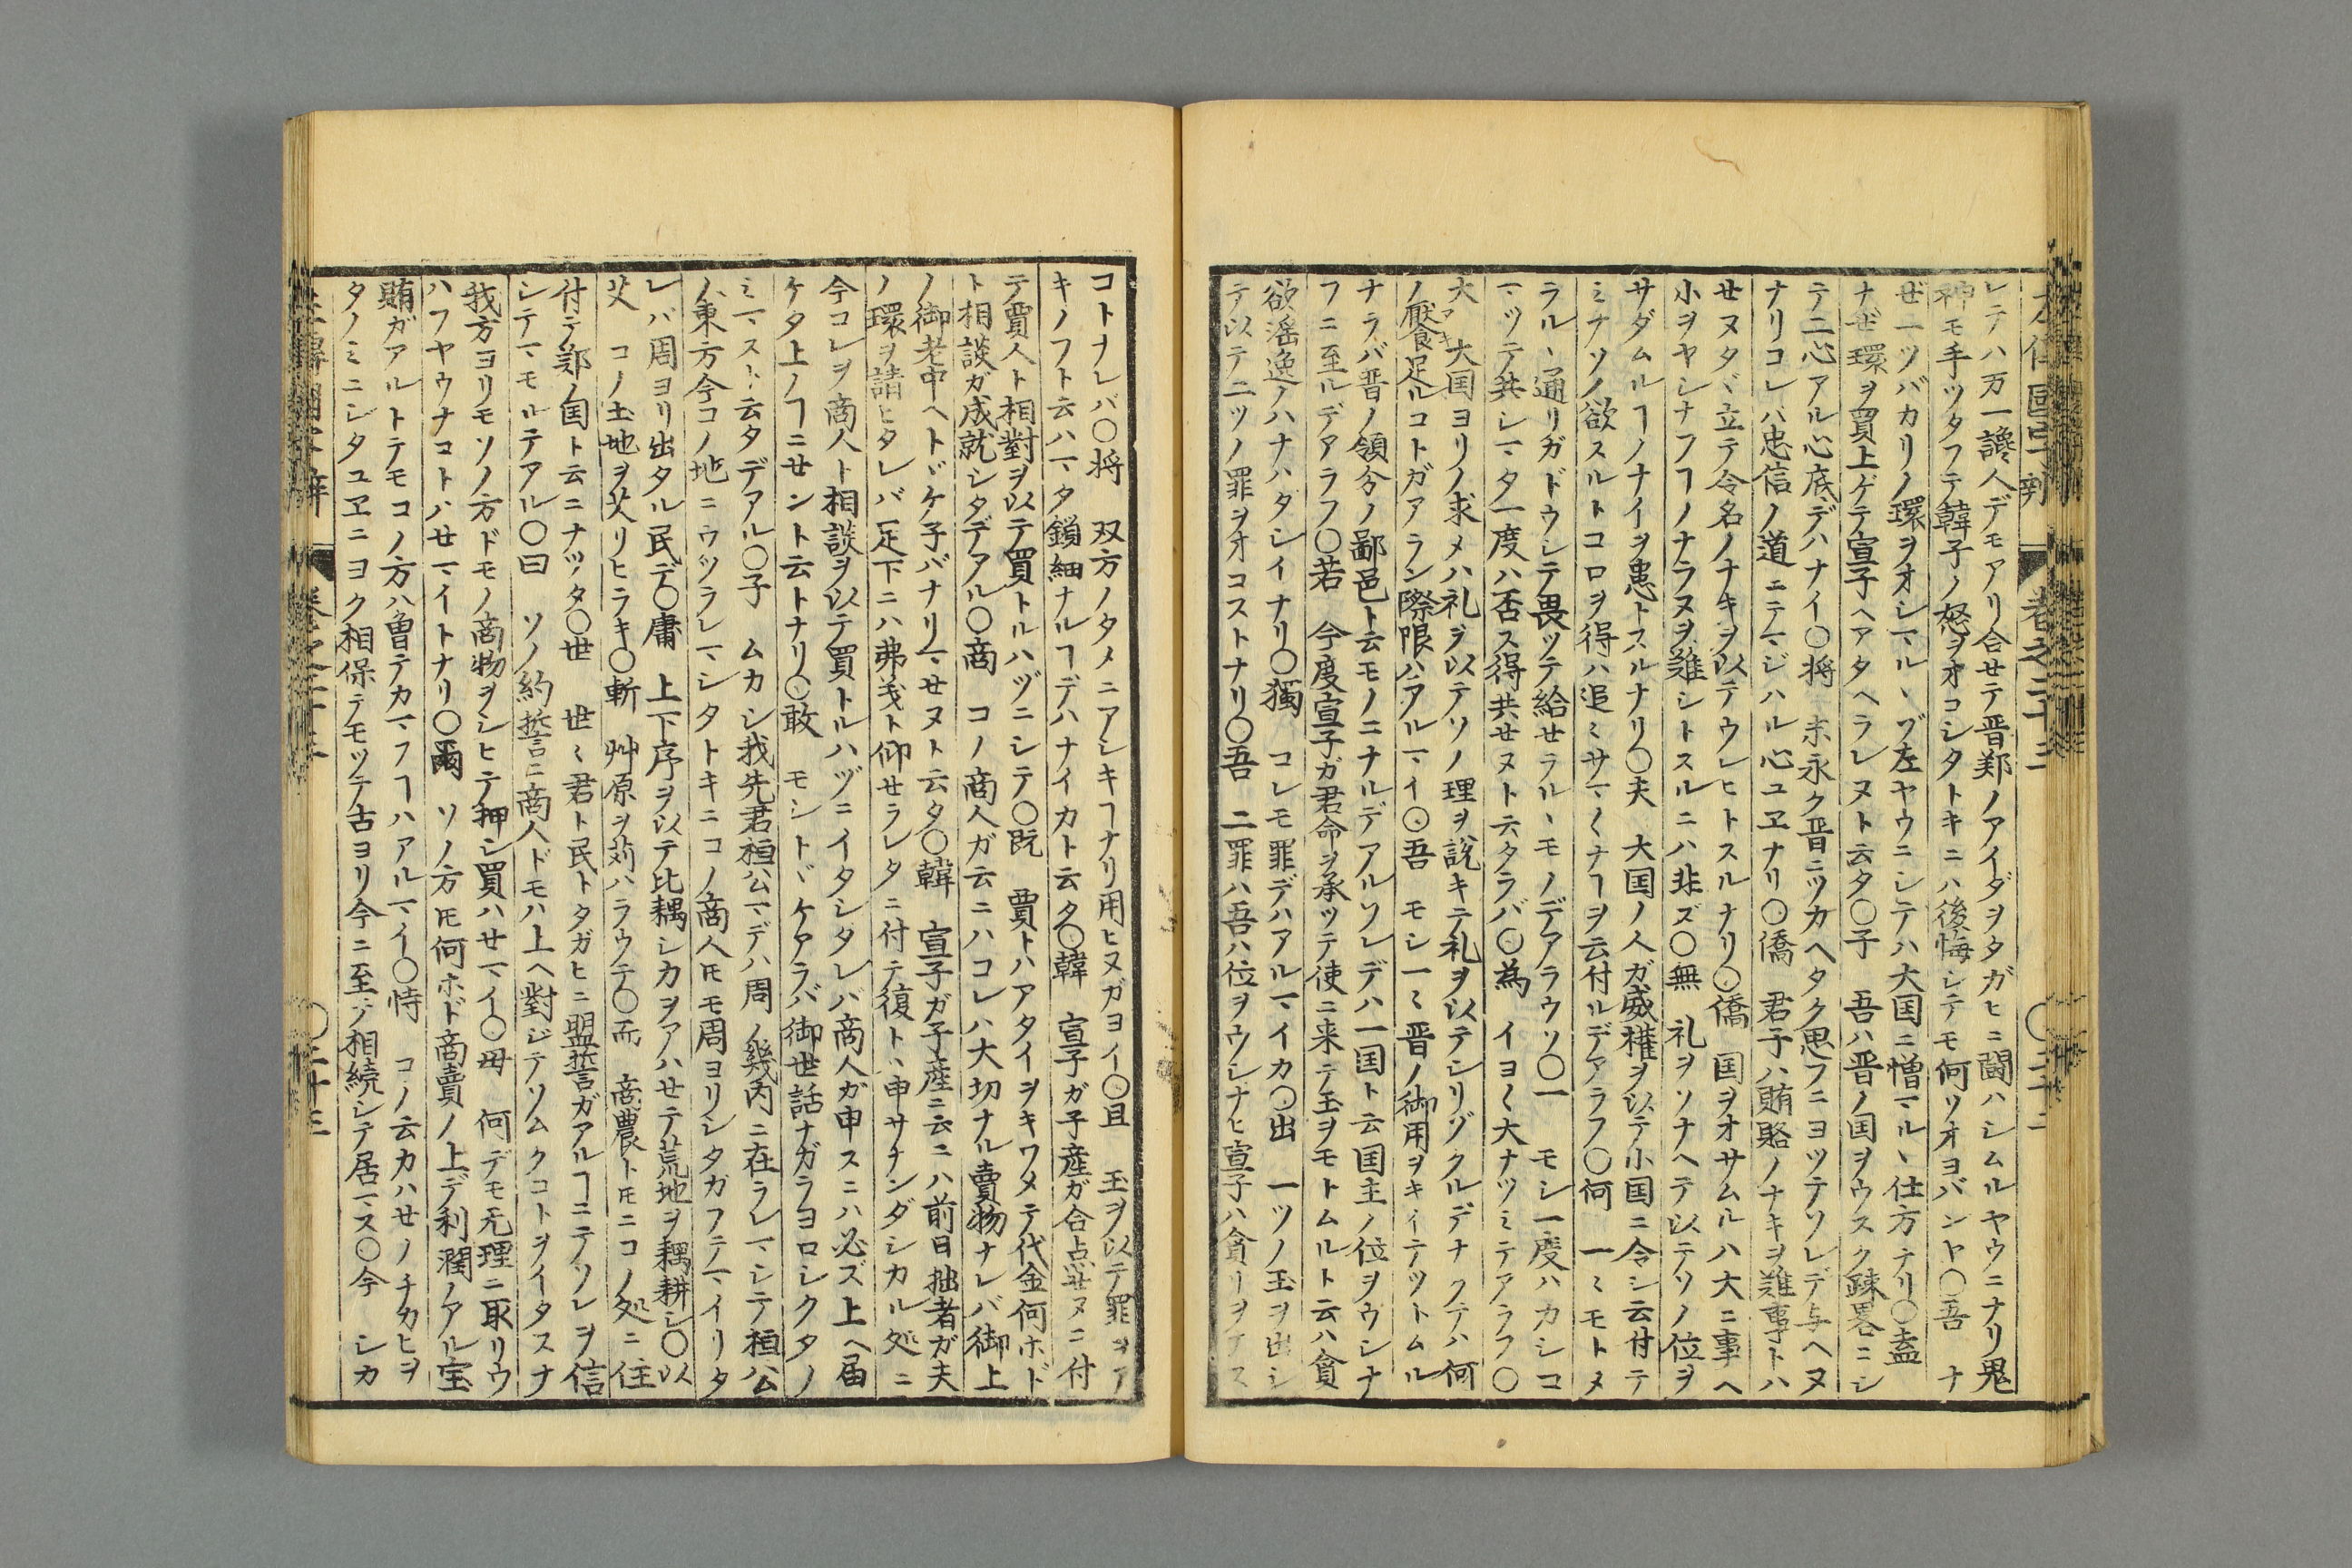 レテハ万一讒人デモアリ合セテ晋鄭ノアイダヲタガヒニ鬪ハシムルヤウニナリ鬼
神モ手ツタフテ韓子ノ怒ヲオコシタトキニハ後悔シテモ何ソオヨバンヤ○吾 ナ
ゼ一ツバカリノ環ヲオシマル、ゾ左ヤウニシテハ大国ニ憎マル、仕方テリ○盍
ナゼ環ヲ買上ゲテ宣子ヘアタヘラレヌト云タ○子 吾ハ晋ノ国ヲウスク踈畧ニシ
テ二心アル心底デハナイ○将 末永ク晋ニツカヘタク思フニヨツテソレデ与ヘヌ
ナリコレハ忠信ノ道ニテマジハル心ユヱナリ○僑 君子ハ賄賂ノナキヲ難事トハ
セヌタヾ立テ令名ノナキヲ以テウレヒトスルナリ○僑 国ヲオサムルハ大ニ事ヘ
小ヲヤシナフヿノナラヌヲ難シトスルニハ非ズ○無 礼ヲソナヘテ以テソノ位ヲ
サダムルヿノナイヲ患トスルナリ○夫 大国ノ人ガ威権ヲ以テ小国ニ令シ云付テ
ミナソノ欲スルトコロヲ得ハ追〻サマ〱ナヿヲ云付ルデアラフ○何 一〻モトメ
ラル、通リガドウシテ畏ツテ給セラル、モノデアラウソ○一 モシ一度ハカシコ
マツテ共シマタ一度ハ否ス得共セヌト云タラバ○為 イヨ〱大ナツミテアラフ○
大 大国ヨリノ求メハ礼ヲ以テソノ理ヲ説キテ礼ヲ以テシリゾクルデナクテハ何
ノ厭食足ルコトガアラン際限ハアルマイ○吾 モシ一〻晋ノ御用ヲキイテツトムル
ナラバ晋ノ領分ノ鄙邑ト云モノニナルデアルソレデハ一国ト云国主ノ位ヲウシナ
フニ至ルデアラフ○若 今度宣子ガ君命ヲ承ツテ使ニ来テ玉ヲモトムルト云ハ貪
欲滛逸ノハナハタシイナリ○獨 コレモ罪デハアルマイカ○出 一ツノ玉ヲ出シ
テ以テ二ツノ罪ヲオコストナリ○吾 二罪ハ吾ハ位ヲウシナヒ宣子ハ貪リヲナス
コトナレバ○将 双方ノタメニアシキヿナリ用ヒヌガヨイ○且 玉ヲ以テ罪ヲア
キノフト云ハマタ鎖細ナルヿデハナイカト云タ○韓 宣子ガ子産ガ合点セヌニ付
テ賈人ト相對ヲ以テ買トルハヅニシテ○既 賈トハアタイヲキワメテ代金何ホド
ト相談ガ成就シタデアル○商 コノ商人ガ云ニハコレハ大切ナル賣物ナレバ御上
ノ御老中ヘトヾケ子バナリマセヌト云タ○韓 宣子ガ子産ニ云ニハ前日拙者ガ夫
ノ環ヲ請ヒタレバ足下ニハ弗义ト仰セラレタニ付テ復トハ申サナンダシカル処ニ
今コレヲ商人ト相談ヲ以テ買トルハヅニイタシタレバ商人ガ申スニハ必ズ上ヘ届
ケタ上ノヿニセント云トナリ○敢 モシトヾケアラバ御世話ナガラヨロシクタノ
ミマスト云タデアル○子 ムカシ我先君桓公マデハ周ノ幾内ニ在ラレマシテ桓公
ハ東方今コノ地ニウツラレマシタトキニコノ商人𪜈モ周ヨリシタガフテマイリタ
レバ周ヨリ出タル民デ○庸 上下序ヲ以テ比耦シカヲアハセテ荒地ヲ耦耕シ○以
艾 コノ土地ヲ艾リヒラキ○斬 艸原ヲ苅ハラウテ○而 商農ト𪜈ニコノ処ニ住
付テ鄭ノ国ト云ニナツタ○世 世〻君ト民トタガヒニ盟誓ガアルヿニテソレヲ信
シテマモルテアル○曰 ソノ約誓ニ商人ドモハ上ヘ對ジテソムクコトヲイタスナ
我方ヨリモソノ方ドモノ商物ヲシヒテ押シ買ハセマイ○毋 何デモ无理ニ取リウ
ハフヤウナコトハセマイトナリ○爾 ソノ方𪜈何ホド商賣ノ上デ利潤ノアル宝
賄ガアルトテモコノ方ハ曽テカマフヿハアルマイ○恃 コノ云カハセノチカヒヲ
タノミニシタユヱニヨク相保テモツテ古ヨリ今ニ至ノ相続シテ居マス○今 シカ